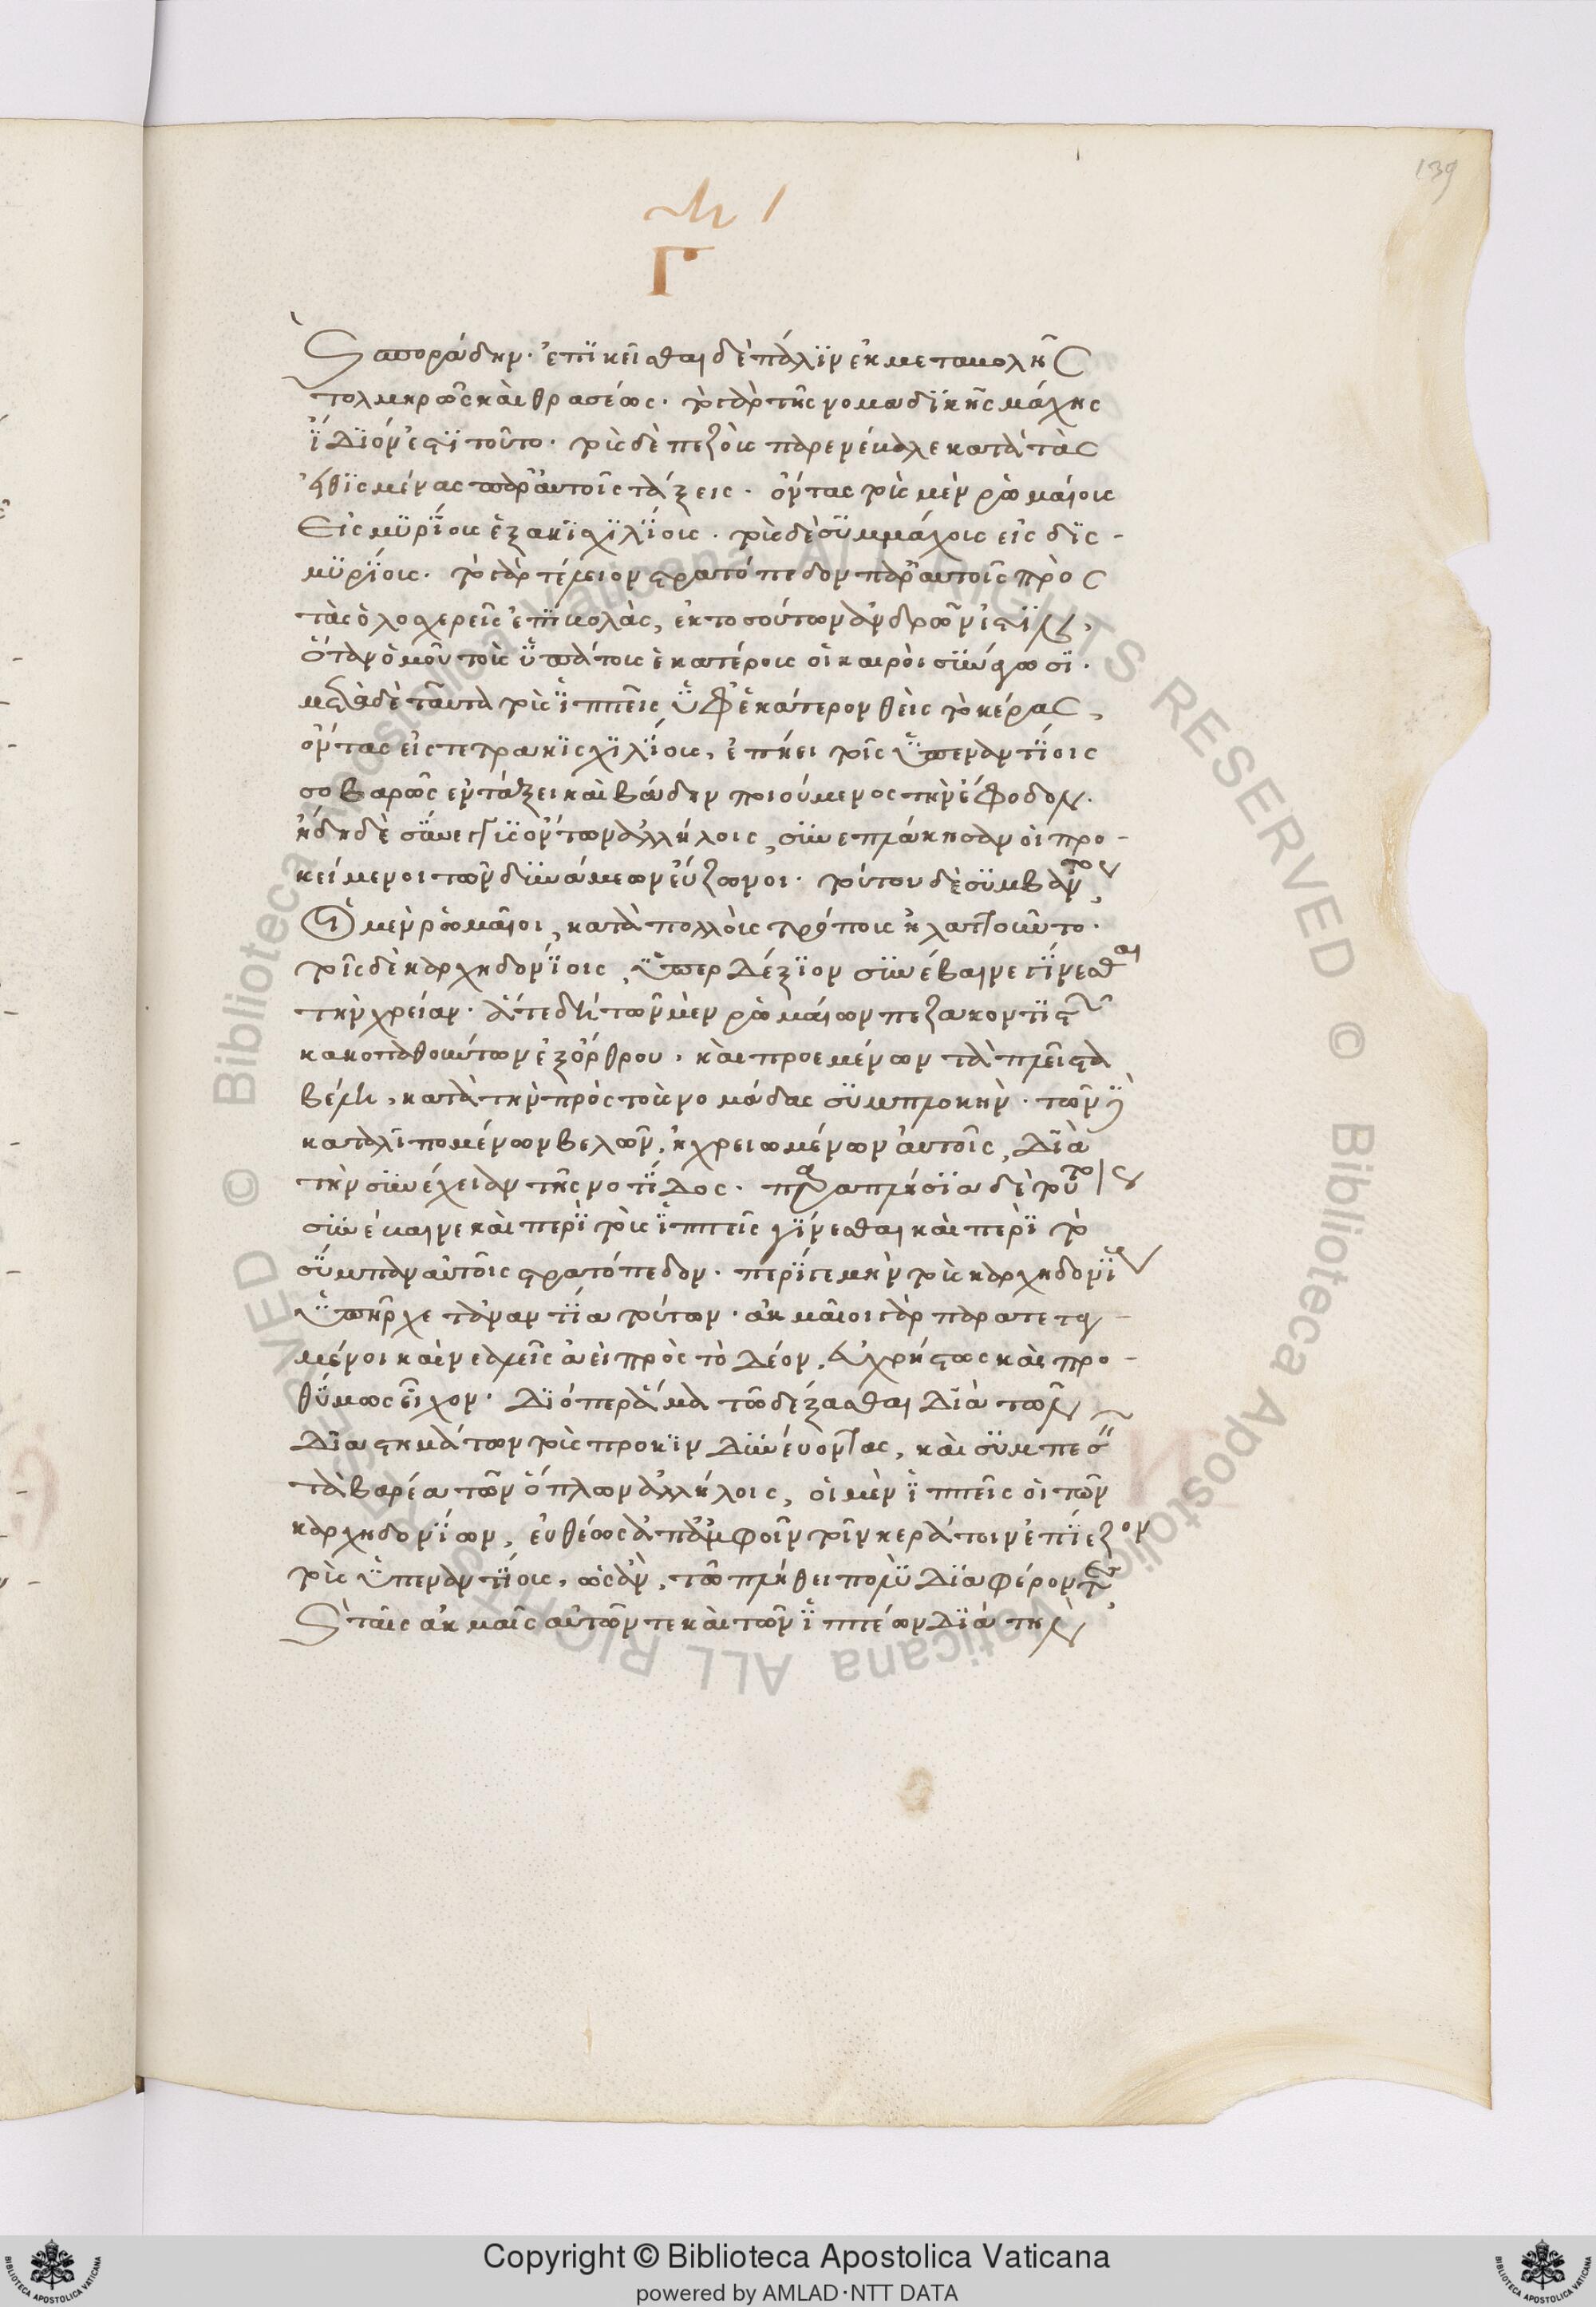 139
Γ
καὶ σποράδην· ἐπικεῖσθαι δὲ πάλιν ἐκ μεταβολῆς
τολμηρῶς καὶ θρασέως· τὸ γὰρ τῆς νομαδικῆς μάχης
ἴδιόν ἐστι τοῦτο· τοὺς δὲ πεζοὺς παρενέβαλε κατὰ τὰς
εἰθισμένας παρ' αὐτοῖς τάξεις· ὄντας τοὺς μὲν ῥωμαίους
εἰς μυρίους ἑξακισχιλίους· τοὺς δὲ συμμάχους εἰς δισ-
μυρίους· τὸ γὰρ τέλειον στρατόπεδον παρ' αὐτοῖς πρὸς
τὰς ὁλοσχερεῖς ἐπιβολὰς, ἐκ τοσούτων ἀνδρῶν ἐστὶν,
ὅταν ὁμοῦ τοὺς ὑπάτους ἑκατέρους οἱ καιροὶ συνάγωσι·
μετὰ δὲ ταῦτα τοὺς ἱππεῖς ὑφ' ἑκάτερον θεὶς τὸ κέρας,
ὄντας εἰς τετρακισχιλίους, ἐπῄει τοῖς ὑπεναντίοις
σοβαρῶς ἐν τάξει καὶ βάδην ποιούμενος τὴν ἔφοδον.
ἤδη δὲ σύνεγγυς ὄντων ἀλλήλοις, συνεπλάκησαν οἱ προ-
κείμενοι τῶν δυνάμεων εὔζωνοι· τούτου δὲ συμβάντος,
οἱ μὲν ῥωμαῖοι, κατὰ πολλοὺς τρόπους ἠλαττοῦντο·
τοῖς δὲ καρχηδονίοις, ὑπερδέξιον συνέβαινε γίνεσθαι
τὴν χρείαν· ἅτε δὴ τῶν μὲν ῥωμαίων πεζακοντιστῶν
κακοπαθούντων ἐξ ὄρθρου, καὶ προεμένων τὰ πλεῖστα
βέλη, κατὰ τὴν πρὸς τοὺς νομάδας συμπλοκήν· τῶν δὲ
καταλιπομένων βελῶν, ἠχρειωμένων αὐτοῖς, διὰ
τὴν συνέχειαν τῆς νοτίδος· παραπλήσια δὲ τούτοις
συνέβαινε καὶ περὶ τοὺς ἱππεῖς γίνεσθαι καὶ περὶ τὸ
σύμπαν αὐτοῖς στρατόπεδον· περί γε μὴν τοὺς καρχηδονίους
ὑπῆρχε τἀναντία τούτων· ἀκμαῖοι γὰρ παρατεταγ-
μένοι καὶ νεαλεῖς ἀεὶ πρὸς τὸ δέον, εὐχρήστως καὶ προ-
θύμως εἶχον· διόπερ ἅμα τῶ δέξασθαι διὰ τῶν
διαστημάτων τοὺς προκινδυνεύοντας, καὶ συμπεσεῖν
τὰ βαρέα τῶν ὅπλων ἀλλήλοις, οἱ μὲν ἱππεῖς οἱ τῶν
καρχηδονίων, εὐθέως ἀπ' ἀμφοῖν τοῖν κεράτοιν ἐπίεζον
τοὺς ὑπεναντίους, ὡς ἂν, τῶ πλήθει πολὺ διαφέροντες
καὶ ταῖς ἀκμαῖς αὐτῶν τε καὶ τῶν ἱππέων διὰ τὴν